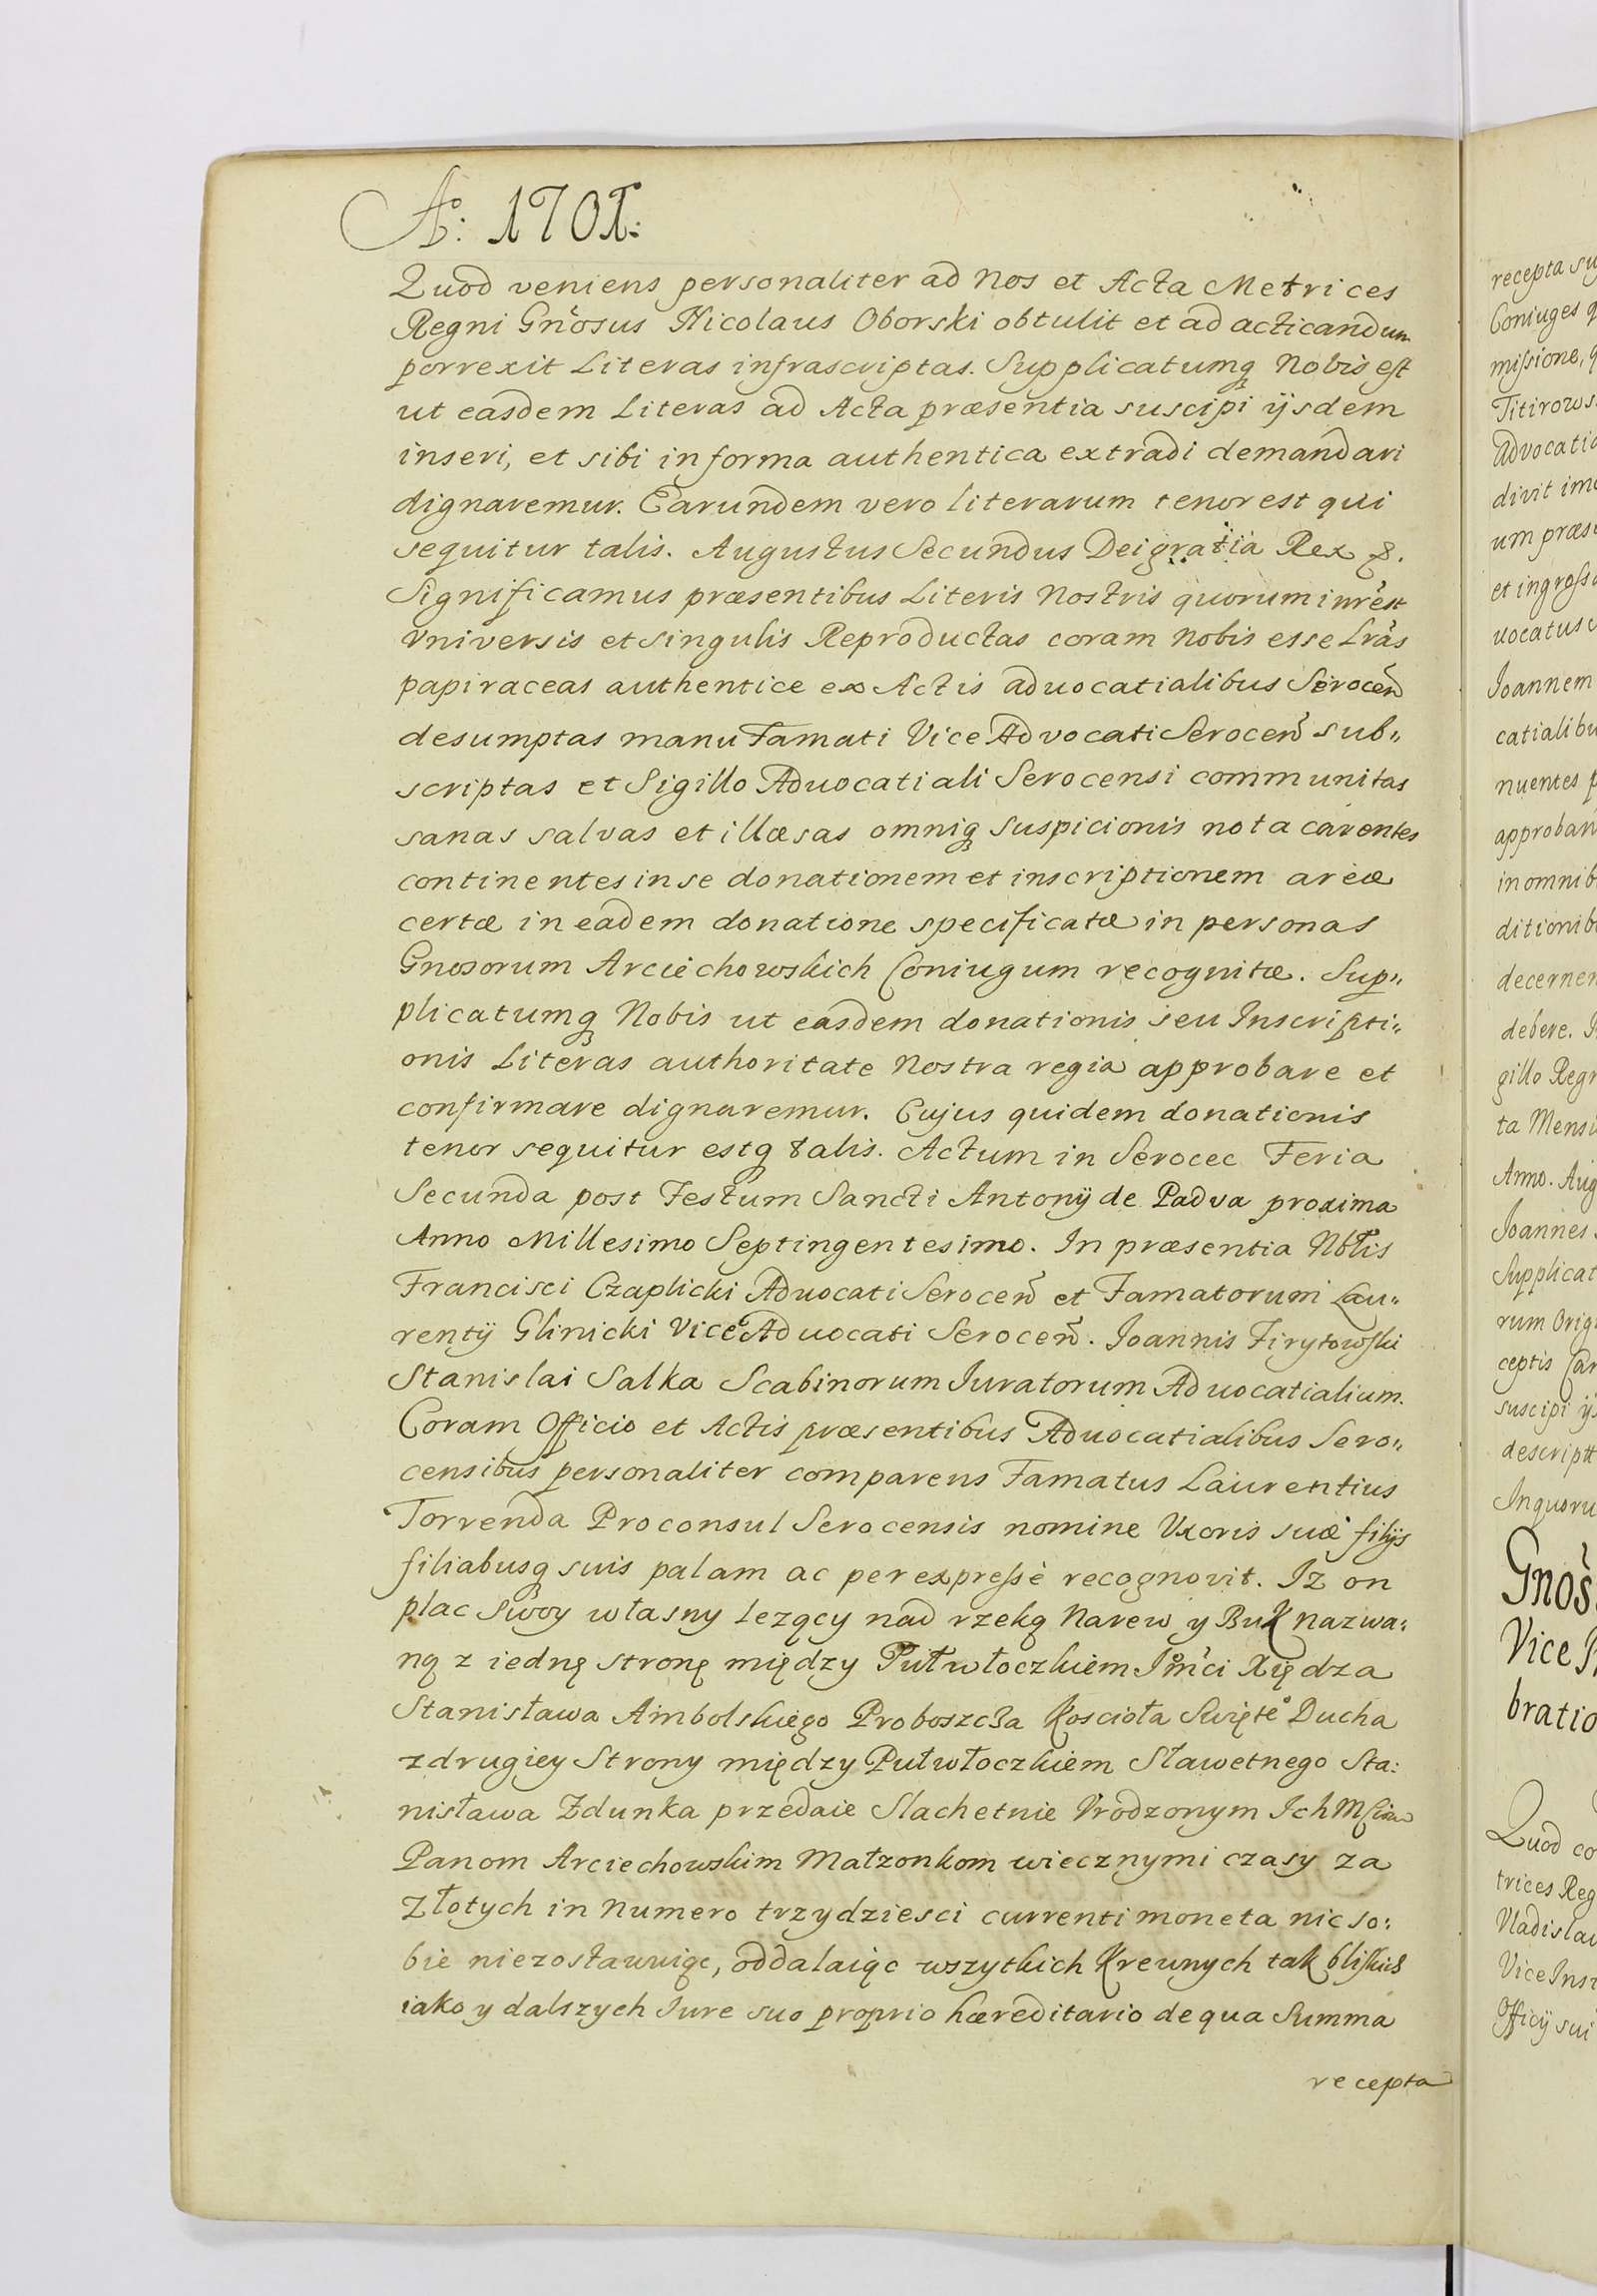 Aº: 1701:
Quod veniens personaliter ad Nos et Acta Metrices
Regni Gnosus Nicolaus Oborski obtulit et ad acticandum
porrexit Literas infrascriptas. Supplicatumq Nobis est
ut easdem Literas ad Acta præsentia suscipi ijsdem
inseri, et sibi in forma authentica extradi demandari
dignaremur. Earundem vero literarum tenor est qui
sequitur talis. Augustus Secundus Dei gratia Rex &.
Significamus præsentibus Literis Nostris quorum inrest
Vniversis et singulis Reproductas coram nobis esse Lras
papiraceas authentice ex Actis aduocatialibus Serocen
desumptas manu Famati Vice Advocati Serocen sub„
scriptas et Sigillo Aduocatiali Serocensi communitas
sanas salvas et illæsas omniq suspicionis nota carentes
continentes in se donationem et inscriptionem areæ
certæ in eadem donatione specificatæ in personas
Gnosorum Arciechowskich Coniugum recognitæ. Sup„
plicatumq Nobis ut easdem donationis seu Inscripti„
onis Literas authoritate Nostra regia approbare et
confirmare dignaremur. Cujus quidem donationis
tenor sequitur estq talis. Actum in Serocec Feria
Secunda post Festum Sancti Antonij de Padva proxima
Anno Millesimo Septingentesimo. In præsentia Nblis
Francisci Czaplicki Aduocati Serocen et Famatorum Lau„
rentij Glinicki Vice Aduocati Serocen. Ioannis Firytowski
Stanislai Salka Scabinorum Iuratorum Aduocatialium.
Coram Officio et Actis præsentibus Aduocatialibus Sero„
censibus personaliter comparens Famatus Laurentius
Torrenda Proconsul Serocensis nomine Vxoris suæ filijs
filiabusq suis palam ac per expresse recognovit. Iz on
plac swoy własny lezący nad rzeką Narew y Buk nazwa:
ną z iednę stronę między Pułwłoczkiem Jmci Xiędza
Stanisława Aimbolskiego Proboszcza Koscioła Swięte Ducha
z drugiey Strony między Pułwłoczkiem Sławetnego Sta:
nisława Zdunka przedaie Slachetnie Vrodzonym Ich Mściom
Panom Arciechowskim Małzonkom wiecznymi czasy za
Złotych in Numero trzydziesci currenti moneta nic so:
bie niezostawuiąc, oddalaiąc wszytkich Krewnych tak bliskich
iako y dalszych Iure suo proprio hæreditario de qua Summa
recepta
recepta su
Coniuges q
missione, q
Titirows
Advocatia
divit imo
um præse
et ingrossa
uocatus
Ioannem
catialibu
nuentes p
approban
in omnib
ditionib
decernen
debere. I
gillo Regn
ta Mensi
Anno. Aug
Ioannes
Supplicat
rum Origi
ceptis Can
suscipi ijs
descriptt
In quoru
Gnos
Vice
bratio
Quod co
trices Reg
Vladislau
Vice Inst
Officij sui